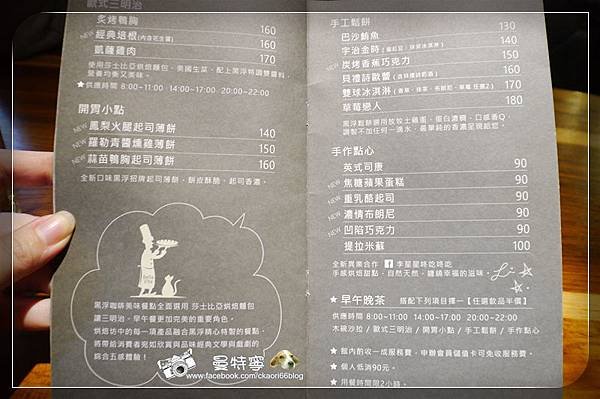 歐式三明治
炙烤鴨胸 160
NEW 經典培根(內含花生醬) 160
凱薩雞肉 170
使用莎士比亞烘焙麵包、美國生菜，配上黑浮特調雙醬料
營養均衡又美味。
★供應時間 8:00~11:00 14:00~17:00 20:00~22:00
開胃小點
NEW 鳳梨火腿起司薄餅 140
NEW 羅勒青醬燻雞薄餅 150
NEW 蒜苗鴨胸起司薄餅 160
全新口味黑浮招牌起司薄餅，餅皮酥脆、起司香濃。
黑浮咖啡美味餐點全面選用 莎士比亞烘焙麵包
讓三明治、早午餐更加完美的重要角色。
烘焙坊中的每一項產品融合黑浮精心特製的餐點，
將帶給消費者宛如欣賞與品味經典文學與戲劇的
綜合五感體驗！
手工鬆餅
巴沙鮪魚 130
宇治金時 140
NEW 炭烤香蕉巧克力 150
貝禮詩歐蕾 160
雙球冰淇淋 170
草莓戀人 180
手作點心
英式司康 90
NEW 焦糖蘋果蛋糕 90
NEW 重乳酪起司 90
NEW 濃情布朗尼 90
NEW 凹陷巧克力 90
提拉米蘇 100
全新異業合作 f 李星星咚吃咚吃
手感烘焙甜點，自然天然，纏繞幸福的滋味。
★ 早午晚茶 搭配下列項目擇一【任選飲品半價】
供應時間 8:00~11:00 14:00~17:00 20:00~22:00
木碗沙拉 / 歐式三明治 / 開胃小點 / 手工鬆餅 / 手作點心
★ 館內酌收一成服務費，申辦會員儲值卡可免收服務費。
★ 個人低消90元。
★ 用餐時間限2小時。
曼特寧
www.facebook.com/ckaori66blog